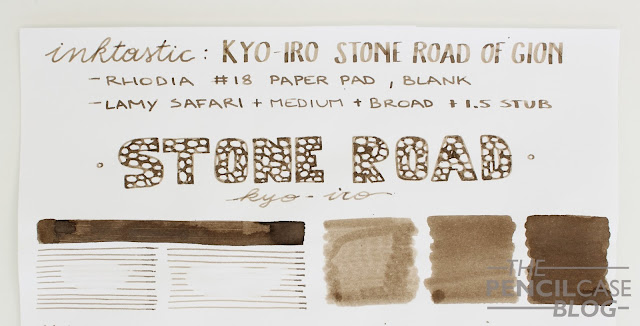 inktastic: KYO-IRO STONE ROAD OF GION
- RHODIA #18 PAPER PAD, BLANK
- LAMY SAFARI + MEDIUM + BROAD + 1.5 STUB
· STONE ROAD ·
kyo-iro
THE
PENCILCASE
BLOG